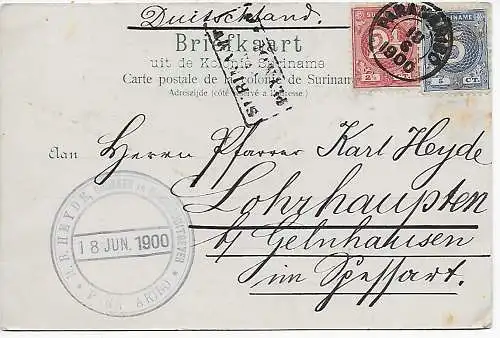 Duitschland.
Briefkaart
uit de Kolonie Suriname
Carte postale de la colonie de Suriname
Adreszijde (côté réservé à l'adresse.)
SURINAME
2½ CT.
SURINAME
5 CT.
PARAMARIBO
18
6
1900
SURINAM
Aan Herrn Pfarrer Karl Heyde
Lohrhaupten
b/ Gelnhausen
im Spessart.
HEYDE
18 JUN. 1900